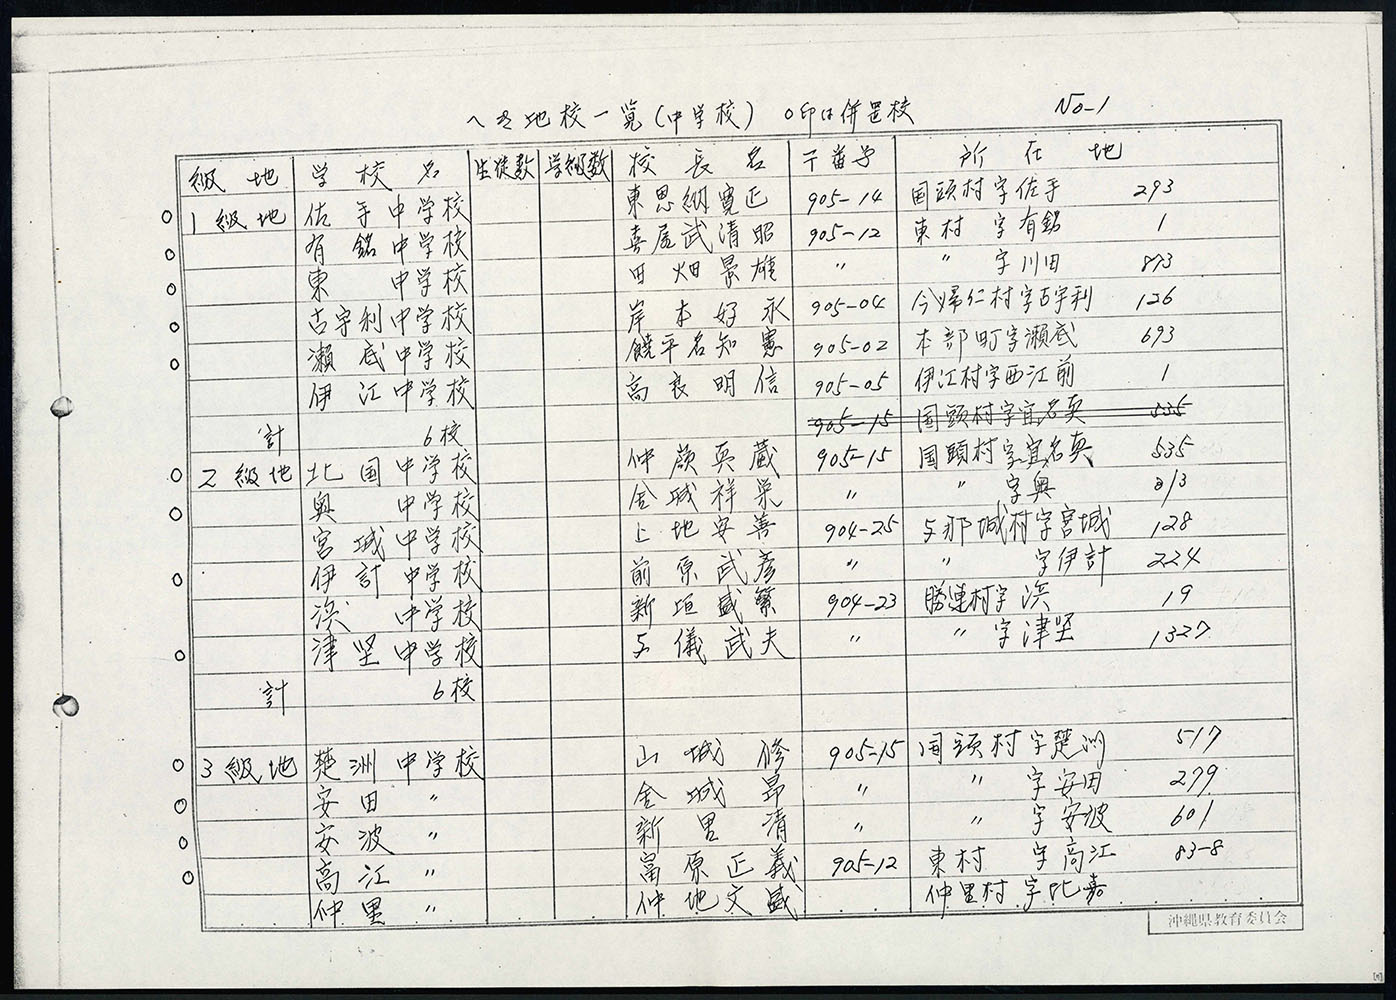 へき地校一覧(中学校) ○印は併置校 No-1
級地 学校名 生徒数 学級数 校長名 〒番号 所在地
○ 1級地 佐手中学校 東恩納寛正 905-14 国頭村字佐手 293
○ 有銘中学校 喜屋武清昭 905-12 東村 字有銘 1
○ 東 中学校 田畑景雄 〃 〃 字川田 893
○ 古宇利中学校 岸本好永 905-04 今帰仁村字古宇利 126
○ 瀬底中学校 饒平名知憲 905-02 本部町字瀬底 693
伊江中学校 高良明信 905-05 伊江村字西江前 1
905-15 国頭村字宜名真 535
計 6校
○ 2級地 北国中学校 仲嶺真蔵 905-15 国頭村字宜名真 535
○ 奥 中学校 金城祥栄 〃 〃 字奥 213
宮城中学校 上地安善 904-25 与那城村字宮城 128
○ 伊計中学校 前原武彦 〃 〃 字伊計 224
浜 中学校 新垣盛繁 904-23 勝連村字浜 19
○ 津堅中学校 与儀武夫 〃 〃 字津堅 1327
計 6校
○ 3級地 楚洲中学校 山城修 905-15 国頭村字楚洲 517
○ 安田 〃 金城昴 〃 〃 字安田 279
○ 安波 〃 新里清 〃 〃 字安波 601
○ 高江 〃 富原正義 905-12 東村 字高江 83-8
仲里 〃 仲地文盛 仲里村字比嘉
沖縄県教育委員会